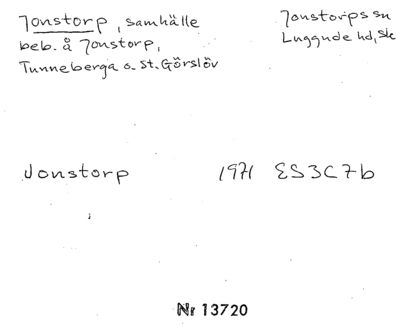 Jonstorp, samhälle
beb. å Jonstorp,
Tunneberga o. St. Görslöv
Jonstorps sn
Luggude hd, Sk
Jonstorp 1971 ES3C7b
Nr 13720